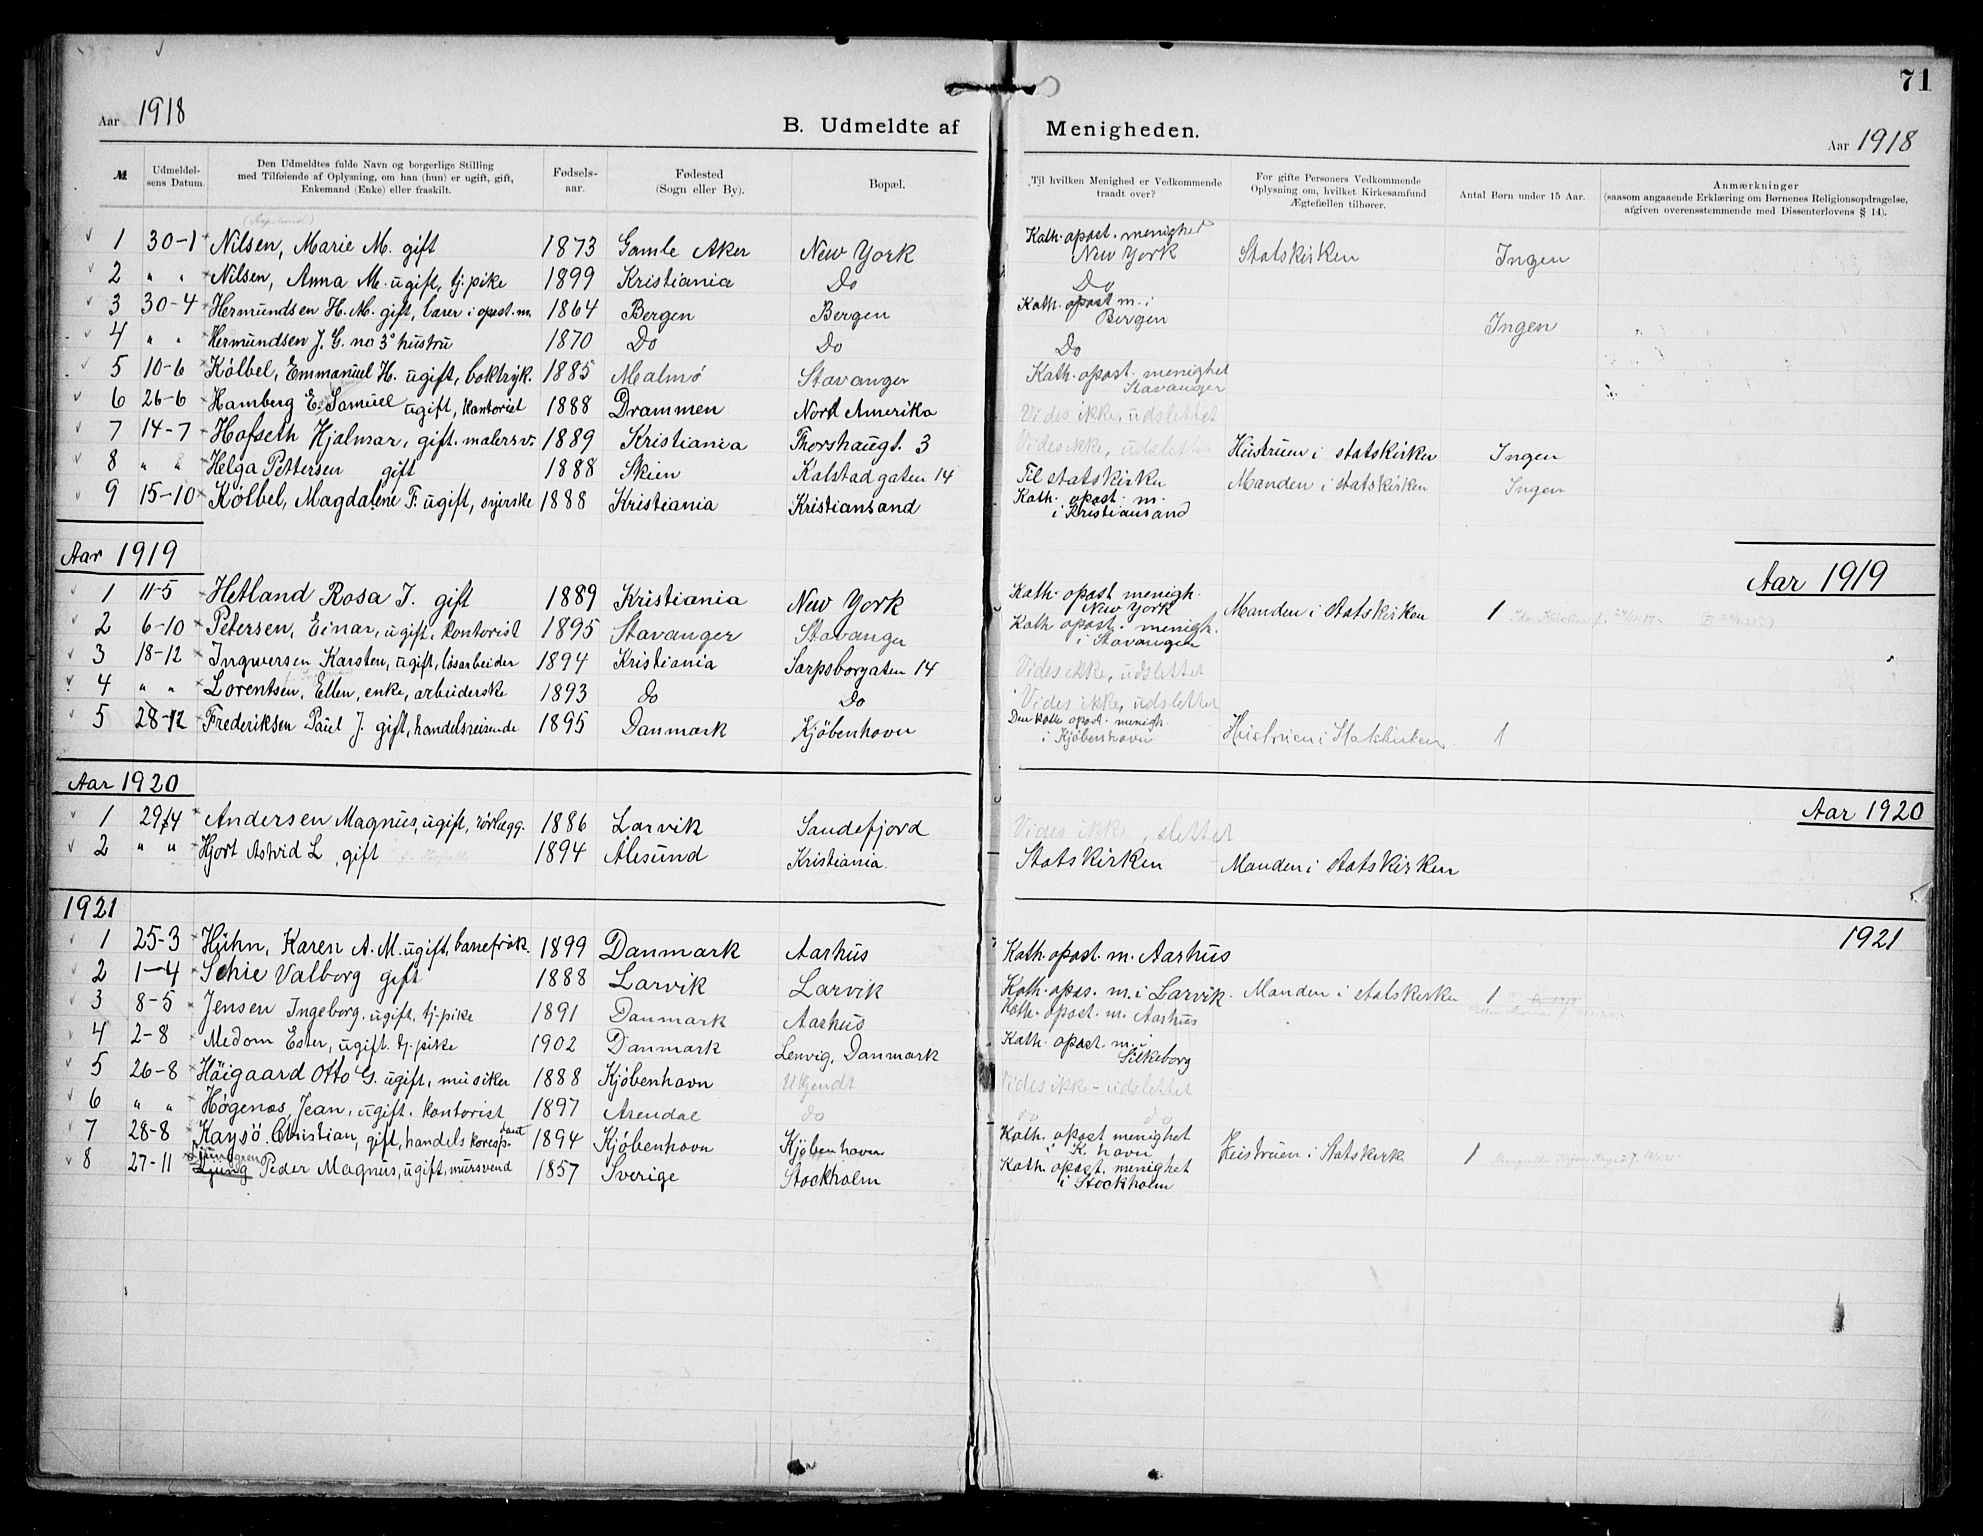 71
Aar 1918
B. Udmeldte af Menigheden.
Aar 1918
№
Udmeldel-
sens Datum.
Den Udmeldtes fulde Navn og borgerlige Stilling
med Tilføiende af Oplysning, om han (hun) er ugift, gift,
Enkemand (Enke) eller fraskilt.
Fødsels-
aar.
Fødested
(Sogn eller By).
Bopæl.
Til hvilken Menighed er Vedkommende
traadt over?
For gifte Personers Vedkommende
Oplysning om, hvilket Kirkesamfund
Ægtefællen tilhører.
Antal Børn under 15 Aar.
Anmærkninger
(saasom angaaende Erklæring om Børnenes Religionsopdragelse,
afgiven overensstemmende med Dissenterlovens § 14).
1 30-1 Nilsen, Marie M. gift 1873 Gamle Aker New York Kath. apost. menighet New York Statskirken Ingen
2 " " Nilsen, Anna M. ugift, tj. pike 1899 Kristiania Do Do
3 30-4 Hermundsen H. M. gift, lærer i apost. m. 1864 Bergen Bergen Kath. apost m. i Bergen Ingen
4 " " Hermundsen J. C. no 3s hustru 1870 Do Do Do
5 10-6 Kölbel, Emmanuel H. ugift, boktryk. 1885 Malmö Stavanger Kath. apost. menighet Stavanger
6 26-6 Hamberg E. Samuel ugift, kontorist 1888 Drammen Nord Amerika Vides ikke, udslettet
7 14-7 Hofseth Hjalmar, gift. malersv. 1889 Kristiania Thorshaugt. 3 Vides ikke, udslettet Hustruen i statskirken Ingen
8 " " Helga Pettersen gift 1888 Skien Kalstadgaten 14 Til statskirke Manden i statskirken Ingen
9 15-10 Kölbel, Magdalene F. ugift, syerske 1888 Kristiania Kristiansand Kath. apost. m. i Kristiansand
Aar 1919
Aar 1919
1 11-5 Hetland Rosa J. gift 1889 Kristiania New York Kath. apost menigh. New York Manden i statskirken 1
2 6-10 Petersen, Einar, ugift. kontorist 1895 Stavanger Stavanger Kath apost. menigh. i Stavanger
3 18-12 Ingwersen Karsten, ugift, lösarbeider 1894 Kristiania Sarpsborgaten 14 Vides ikke, udslettet
4 " " Lorentsen, Ellen, enke, arbeiderske 1893 Do Do Vides ikke, udslettet
5 28-12 Frederiksen Paul J. gift, handelsreisende 1895 Danmark Kjöbenhavn Den kath apost. menigh. i Kjöbenhavn Hustruen i Statskirken 1
Aar 1920
Aar 1920
1 29/4 Andersen Magnus, ugift, rörlægg. 1886 Larvik Sandefjord Vides ikke, slettet
2 " " Hjort Astrid L, gift 1894 Ålesund Kristiania. Statskirken Manden i statskirken
1921
1921
1 25-3 Hühn, Karen A. M. ugift, banefrøk. 1899 Danmark Aarhus Kath. apost. m. Aarhus
2 1-4 Schie Valborg gift 1888 Larvik Larvik Kath. apos. m. i Larvik. Manden i statskirke 1
3 8-5 Jensen Ingeborg. ugift, tj. pike 1891 Danmark Aarhus Kath. apost. m. Aarhus
4 2-8 Medom Ester, ugift. tj. pike 1902 Danmark Lemvig, Danmark Kath. apost. m. i Silkeborg
5 26-8 Häigaard Otto G. ugift, musiker 1888 Kjöbenhavn Ukjendt Vides ikke - udslettet
6 " " Högenos, Jean, ugift. kontorist 1897 Arendal do do do
7 28-8 Kaysö. Christian, gift, handels koresp.dent 1894 Kjöbenhavn Kjöbenhavn Kath. apost menighet i K. havn Hustruen i Statskirk 1
8 27-11 Ljung Peder Magnus, ugift, mursvend 1857 Sverige Stockholm Kath. apost. menighet i Stockholm